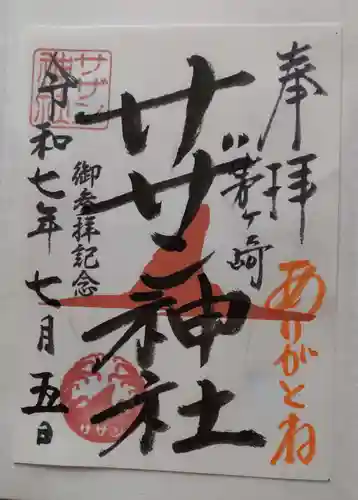 奉拝
ありがとね
茅ヶ崎
サザン神社
御参拝記念
令和七年七月五日
サザン
神社
サザン